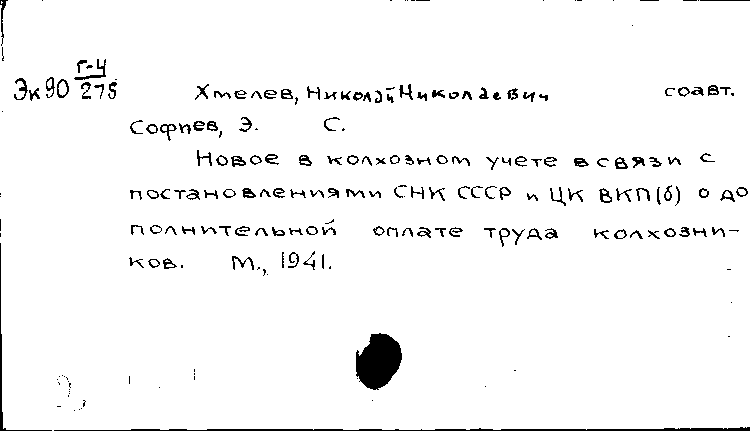 Г-4
Эк90 275
Хмелев, Николай Николаевич соавт.
Софиев, Э. С.
Новое в колхозном учете в связи с
постановлениями СНК СССР и ЦК ВКП(б) о до
полнительной оплате труда колхозни-
ков. М., 1941.